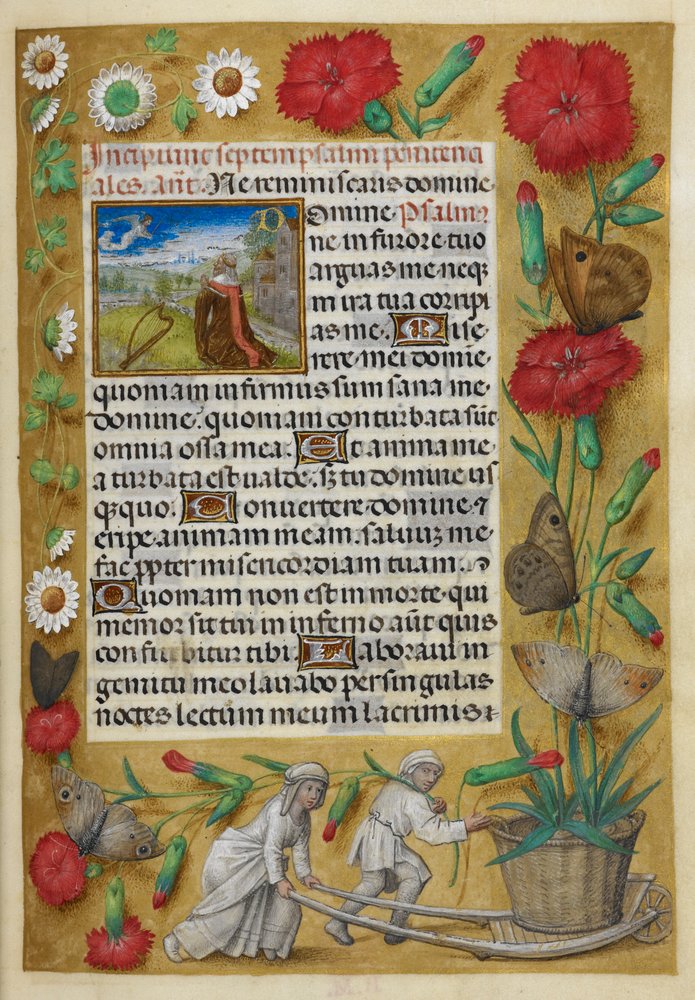 Incipiunt septem psalmi peniten
ales. añt. Ne reminiscaris domine.
Domine Psalm9
ne in furore tuo
arguas me neq3
in ira tua corripi
as me. Mise
rere mei domie
quoniam infirmus sum sana me
domine. quoniam conturbata sūt
omnia ossa mea. Et anima me
a turbata est valde. s3 tu domine us
q3 quo. Convertere domine ⁊
eripe animam meam. salvū3 me
fac ꝓpter misericordiam tuam.
Quoniam non est in morte qui
memor sit tui in inferno aūt quis
confitebitur tibi. Laboravi in
gemitu meo lavabo per singulas
noctes lectum meum lacrimis